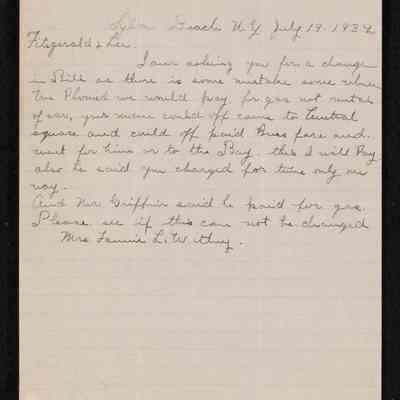 Beach N.Y. July 19. 1932
Fitzgerald & Lee.
I am asking you for a change
in Bill as there is some mistake some where
We Phoned we would pay for gas not
of car, your could off came to Central
square and could off paid Buss fare and
went for him or to the Bay. this I will Pay
also he said you charged for time only one
way.
And Mr Griffin said he paid for gas.
Please see if this can not be changed
Mrs Fannie L. Withey.